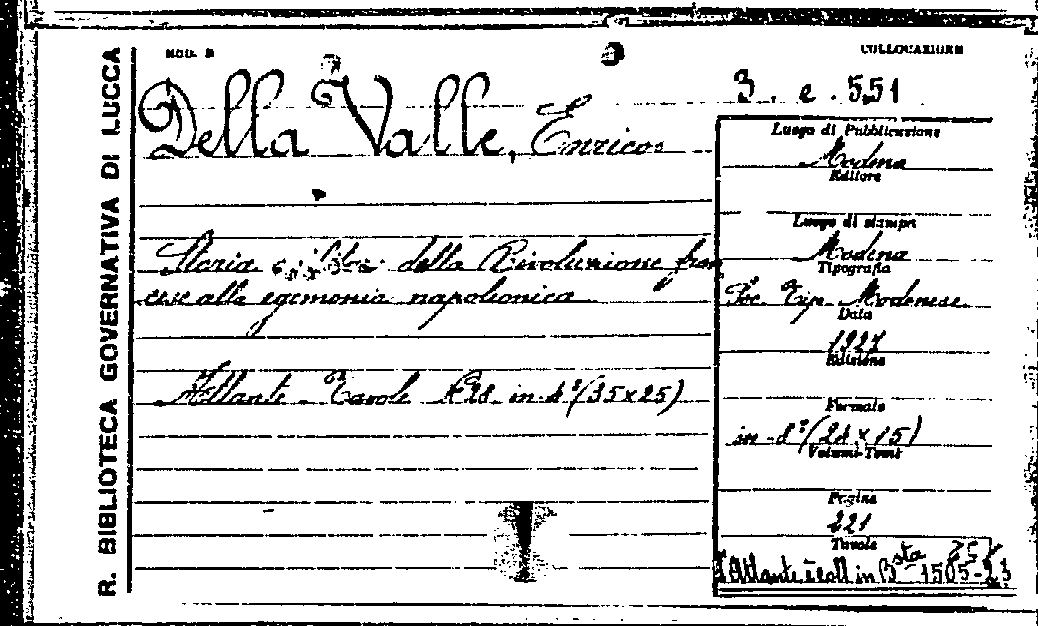 R. BIBLIOTECA GOVERNATIVA DI LUCCA
MOD. B
COLLOCAZIONE
3. e. 551
Della Valle, Enrico
Storia della Rivoluzione fran
cese alla egemonia napoleonica
Atlante - Tavole N. 28. in 4°(35x25)
Luogo di Pubblicazione
Modena
Editore
Luogo di stampa
Modena
Tipografia
Soc. Tip. Modenese
Data
1927
Edizione
Formato
in-8°(24x15)
Volumi-Tomi
Pagine
221
Tavole
L'Atlante è coll. in Bsta 1505-23